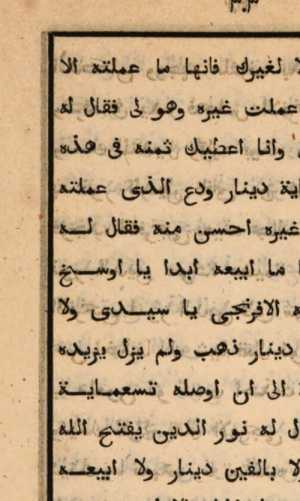 ٣٠٣
لغيرك فانها ما عملته الا
عملت غيره وهو لى فقال له
وانا اعطيك ثمنه فى هذه
ماية دينار ودع الذى عملته
غيره احسن منه فقال لـــه
ما ابيعه ابدا يا اوســـخ
الافرنجى يا ســيـــدى ولا
دينار ذهب ولم يزل يزيده
الى ان اوصله تسعمـــايـــة
له نور الدين يفتح الله
بالفين دينار ولا ابيعـــه